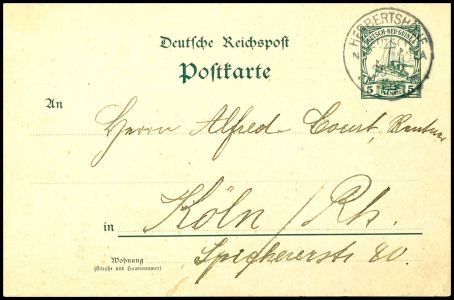 Deutsche Reichspost
HERBERTSHÖHE
DEUTSCH-NEU-GUINEA
Postkarte
5 PFENNIG 5
An
Herrn Alfred Court, Rentner
Köln / Rh.
in
Spichererstr 80.
Wohnung
(Straße und Hausnummer)